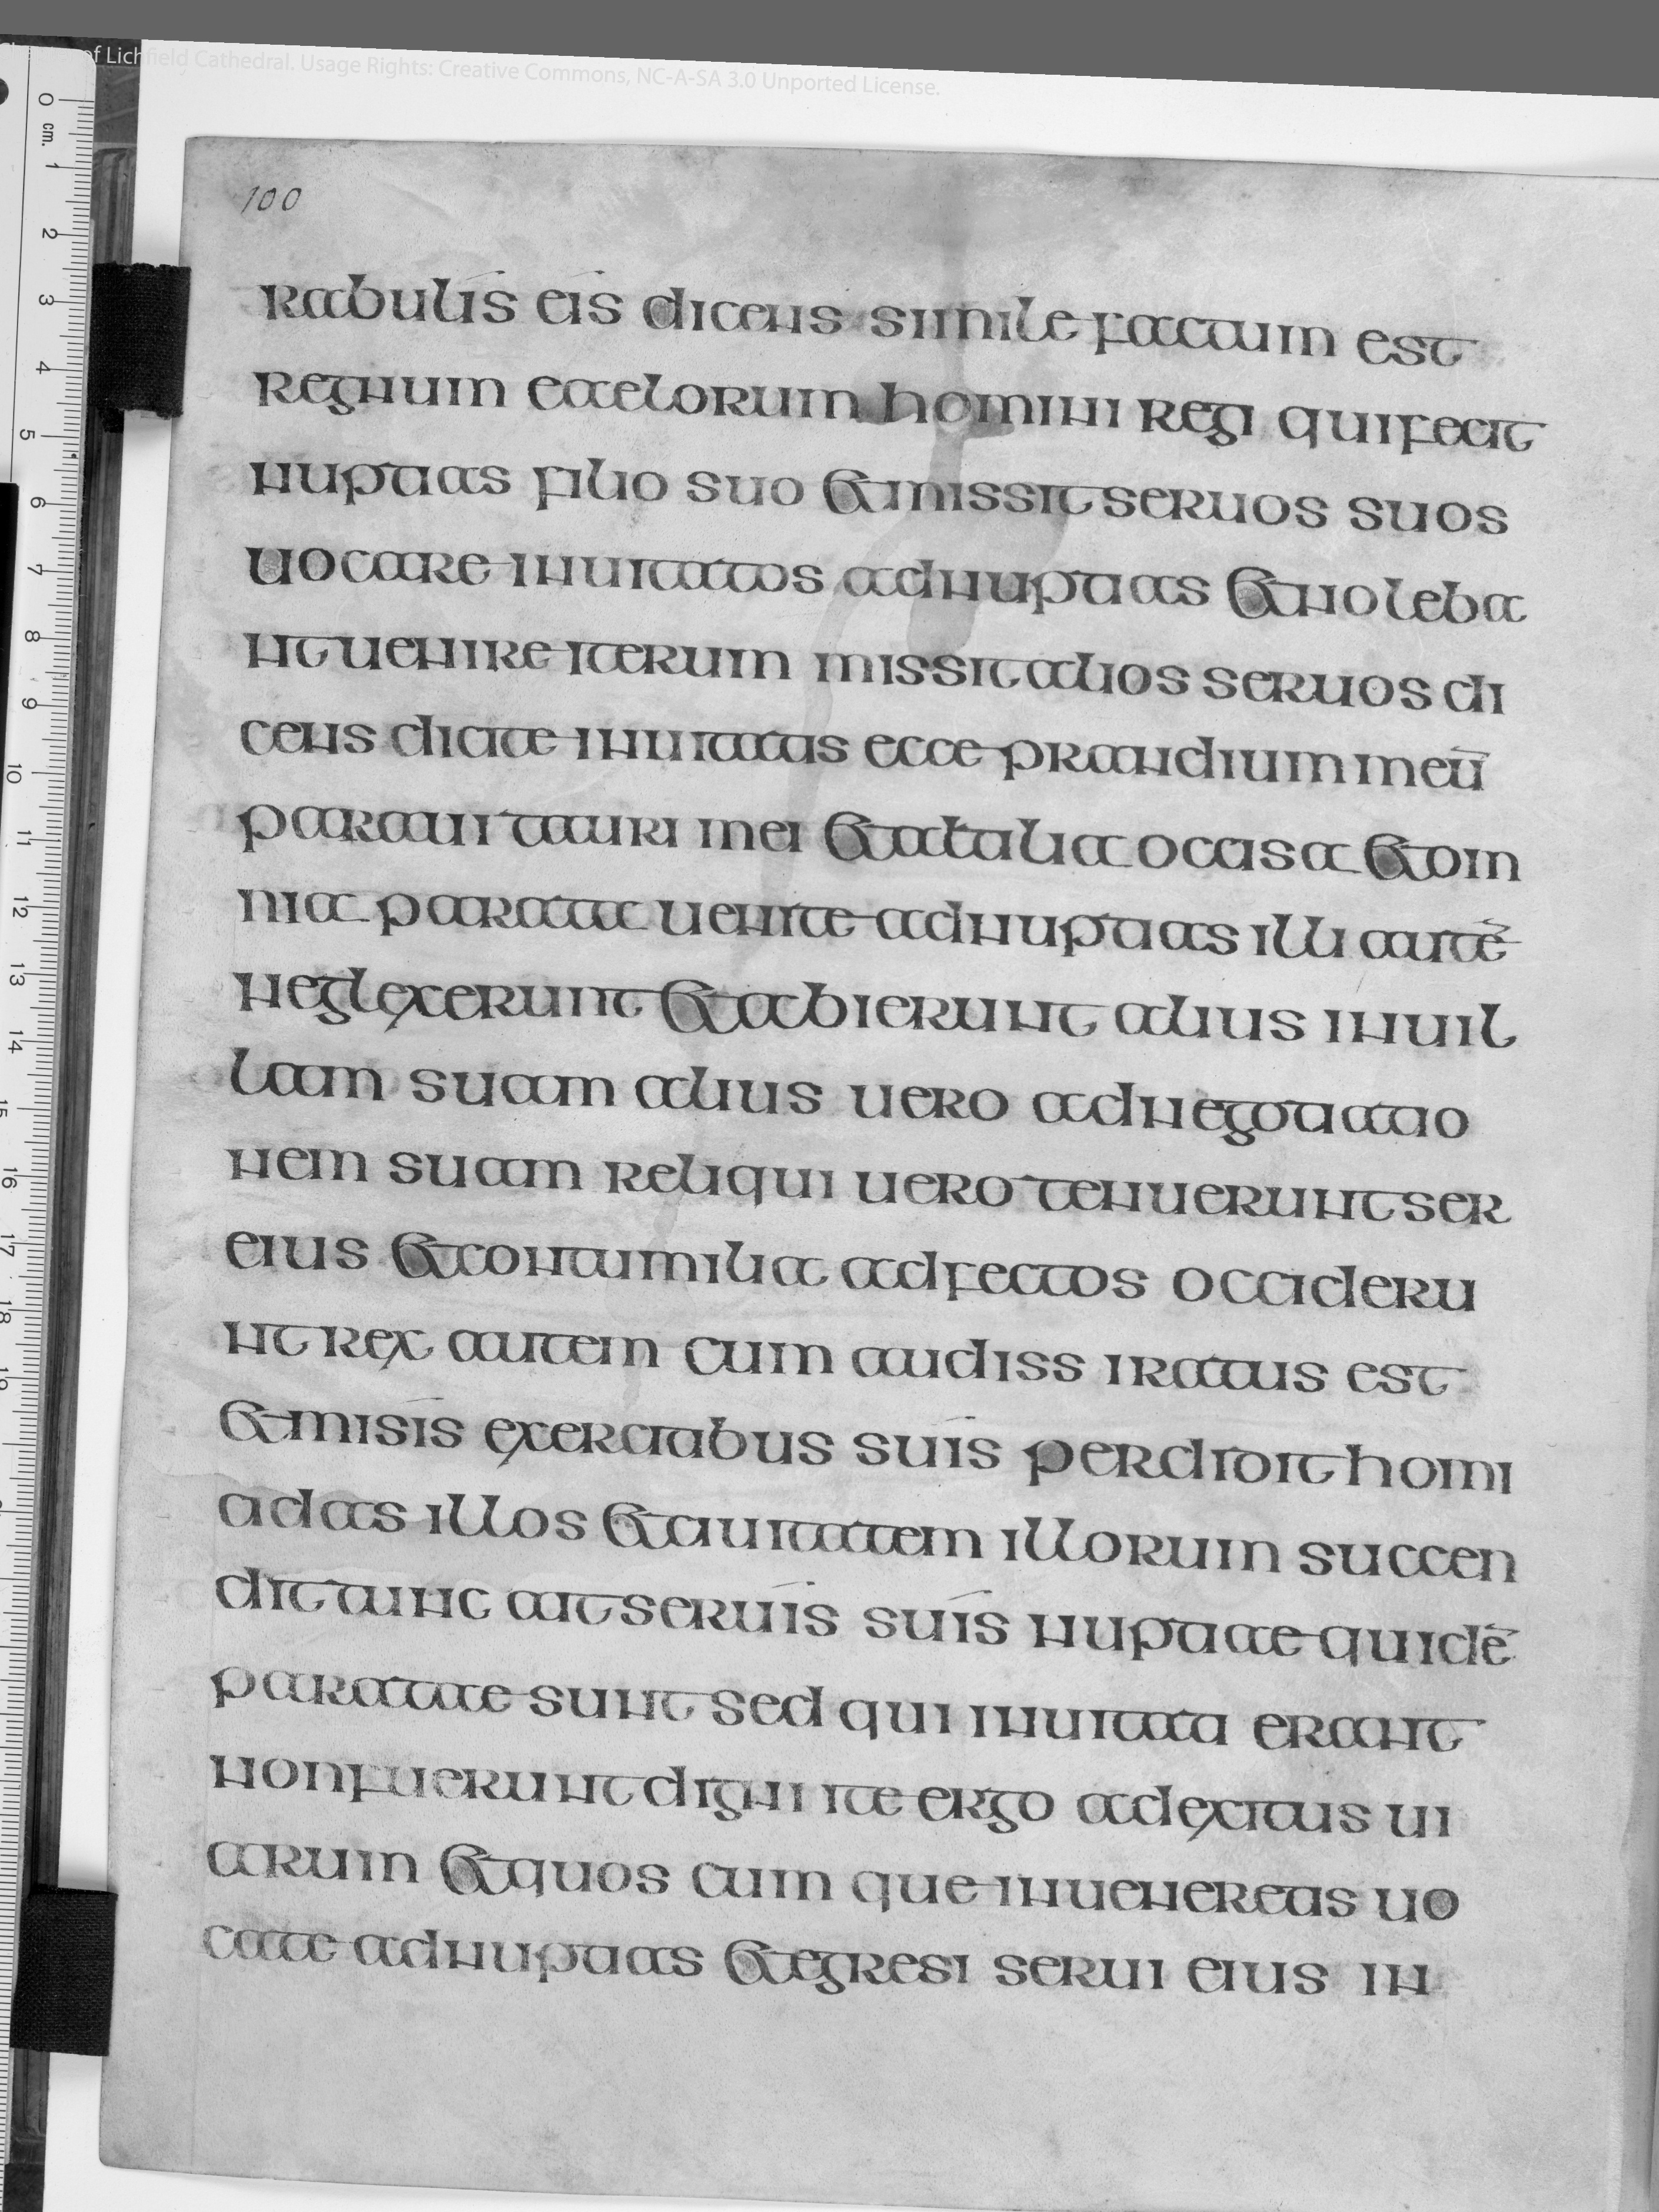 of Lichfield Cathedral. Usage Rights: Creative Commons, NC-A-SA 3.0 Unported License.
100
rabulis eis dicens simile factum est
regnum caelorum homini regi qui fecit
nuptias filio suo & missit seruos suos
uocare inuitatos ad nuptias & noleba
nt uenire iterum missit alios seruos di
cens dicite inuitatis ecce prandium meū
paraui tauri mei & altilia occisa & om
nia parata uenite ad nuptias illi autē
neglexerunt & abierunt alius in uil
lam suam alius uero ad negotiatio
nem suam reliqui uero tenuerunt ser
eius & contumilia adfectos occideru
nt rex autem cum audiss iratus est
& misis exercitibus suis perdidit homi
cidas illos & ciuitatem illorum succen
dit tunc ait seruis suis nuptiae quidē
paratae sunt sed qui inuitati erant
non fuerunt digni ite ergo ad exitus ui
arum & quos cum que inueneretis uo
cate ad nuptias & egresi serui eius in
0 cm. 1 2 3 4 5 6 7 8 9 10 11 12 13 14 15 16 17 18 19